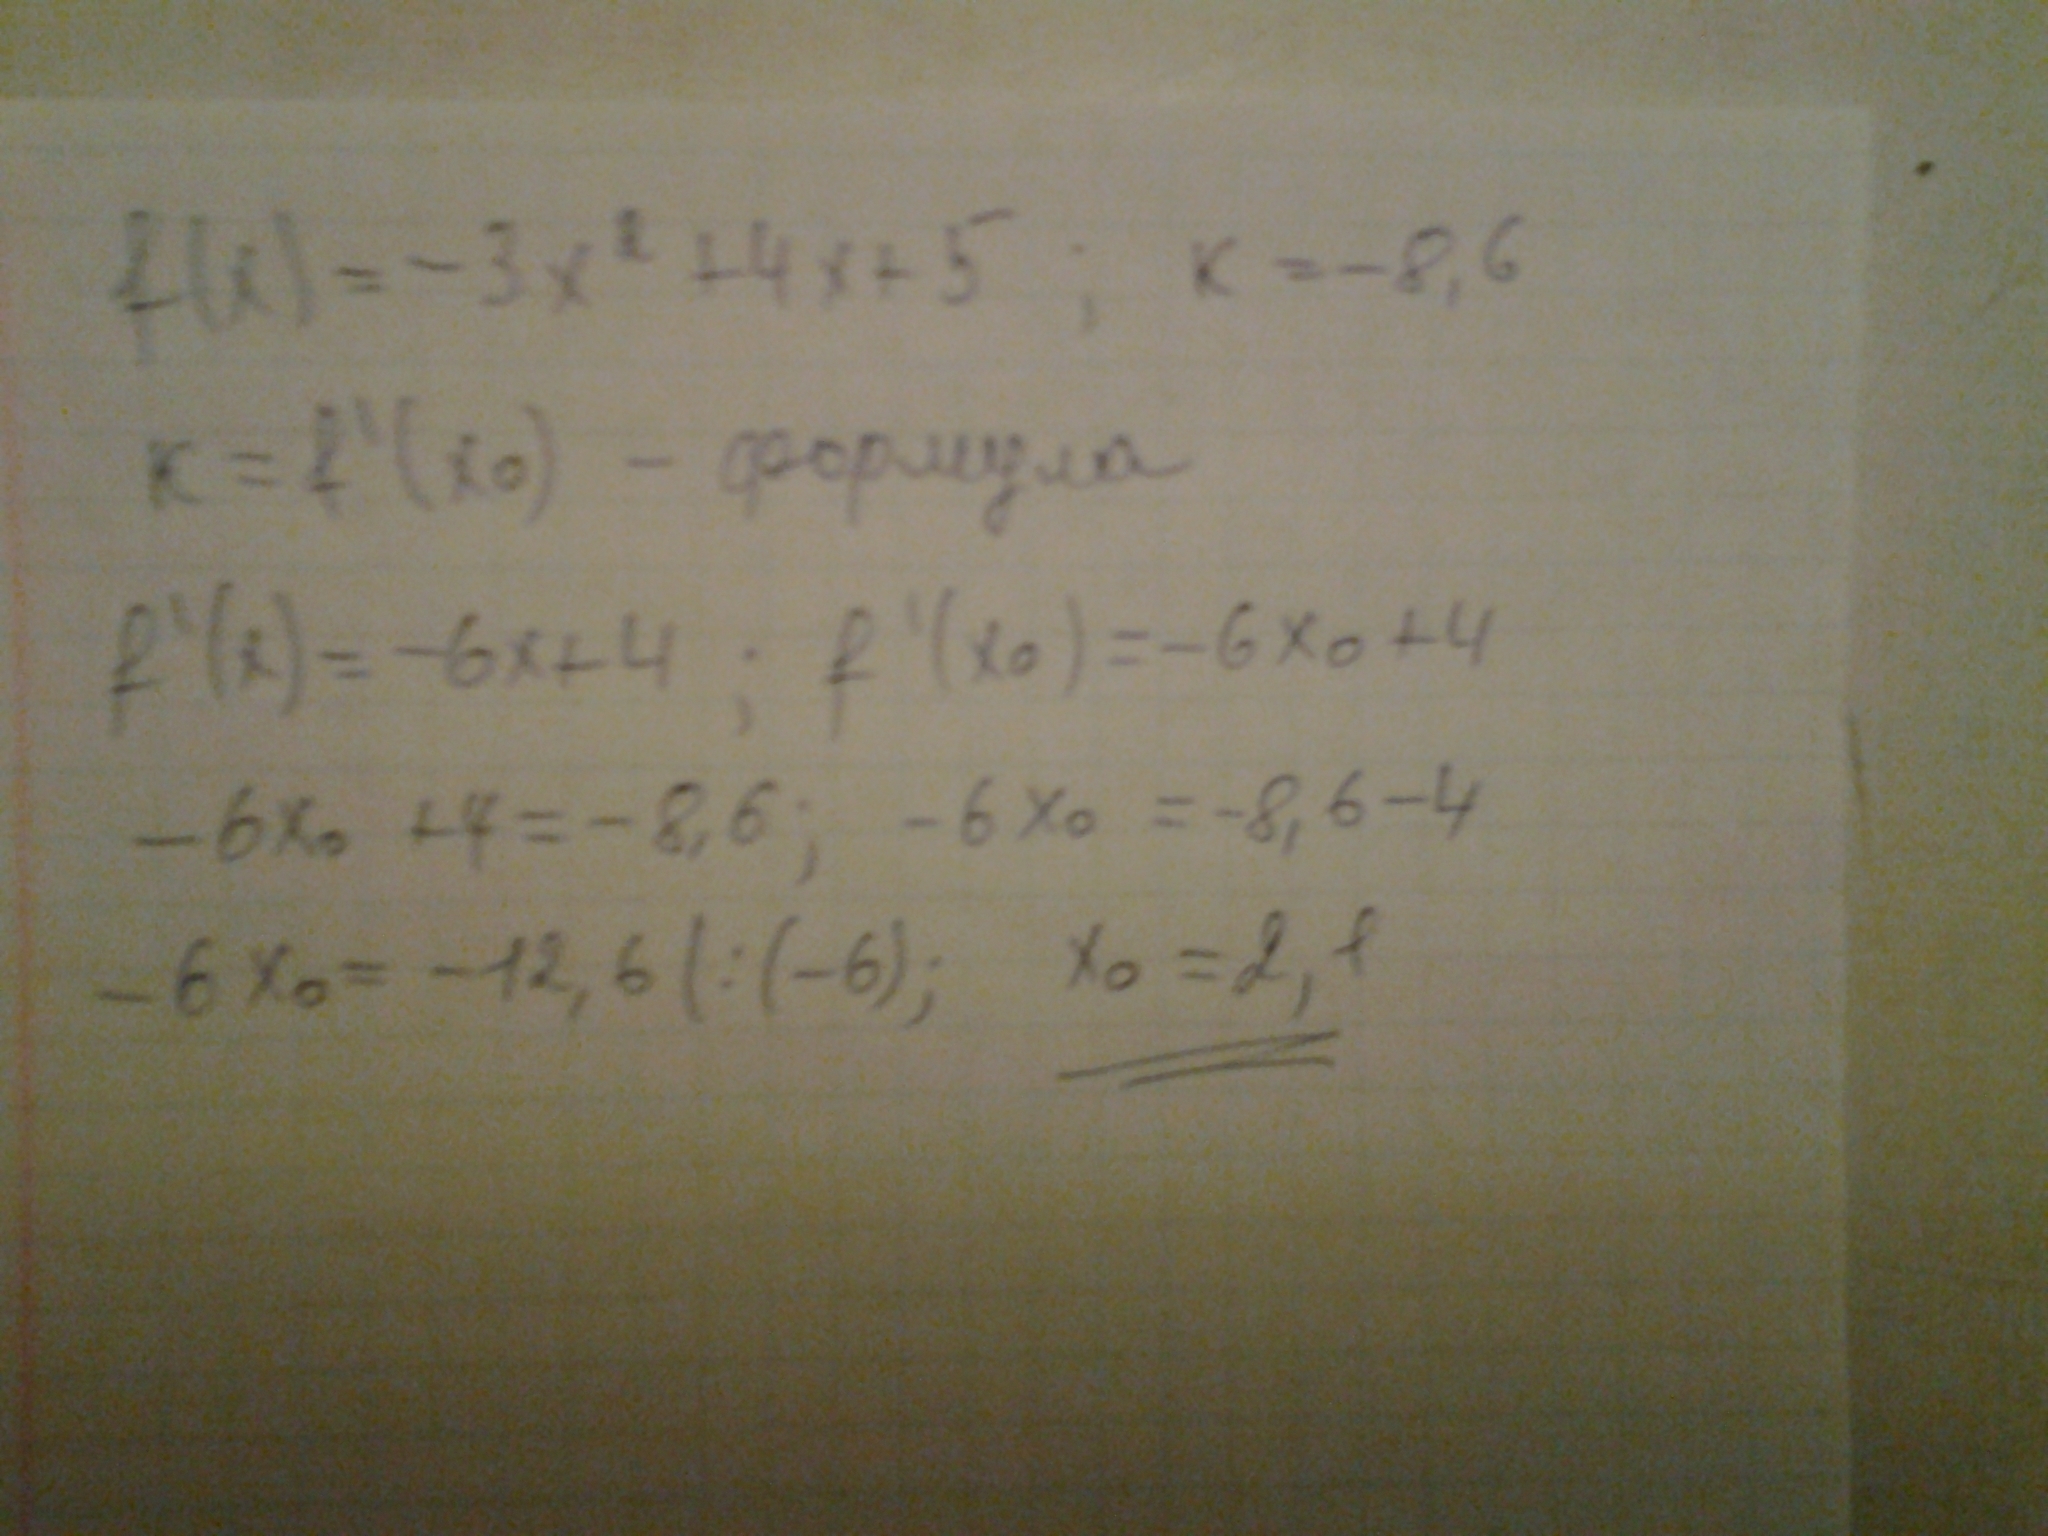 f(x) = -3x² + 4x + 5 ; к = -8,6
к = f'(x₀) - формула
f'(x) = -6x + 4 ; f'(x₀) = -6x₀ + 4
-6x₀ + 4 = -8,6 ; -6x₀ = -8,6 - 4
-6x₀ = -12,6 (:(-6) ; x₀ = 2,1